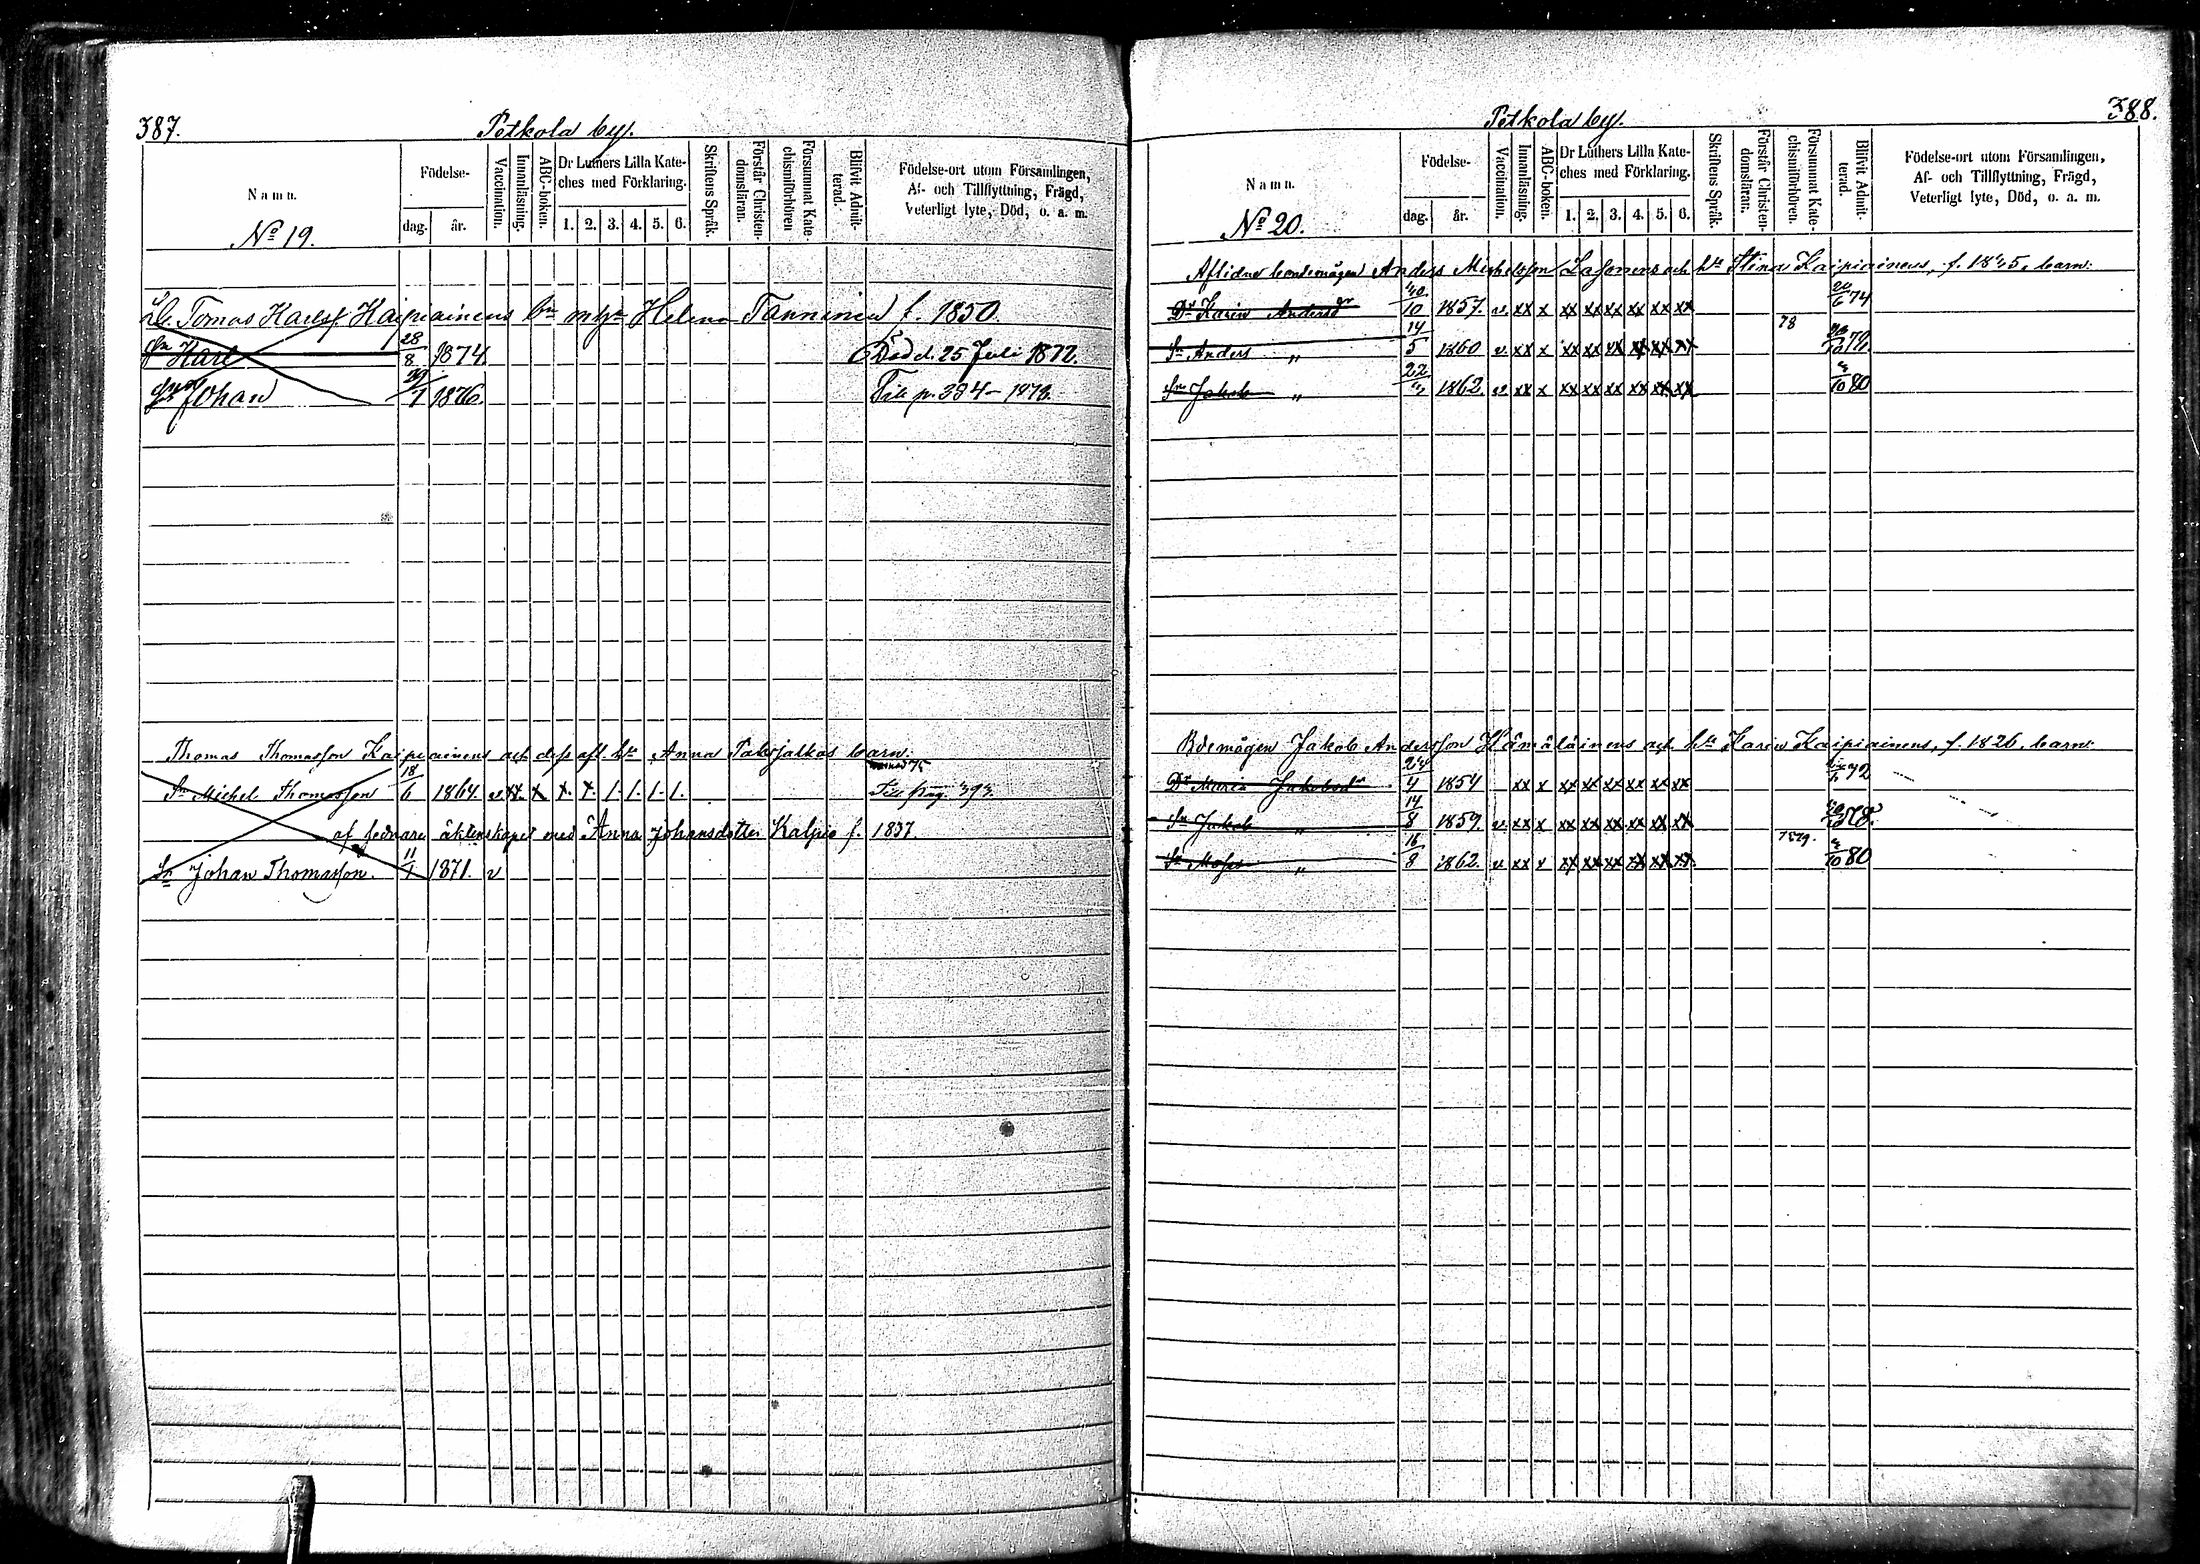 387.
Petkola by.
Namn.
Födelse-
dag.
år.
Vaccination.
Innanläsning.
ABC-boken.
Dr Luthers Lilla Kate-
ches med Förklaring.
1. 2. 3. 4. 5. 6.
Skriftens Språk.
Förstår Christen-
domsläran.
Försummat Kate-
chismiförhören
Blifvit Admit-
terad.
Födelse-ort utom Församlingen,
Af- och Tillflyttning, Frägd,
Veterligt lyte, Död, o. a. m.
No 19.
Tomas Karls. Kaipiainens bn m hu Helena Tanninen f. 1850.
Sn Karl 28/8 1874. Död d. 25 Juli 1877.
Sn Johan 29/7 1876. Till p. 394 – 1879.
Thomas Thomasson Kaipiainens och dess afl. hu Anna barn:
Sn Michel Thomasson 18/6 1864. v. x x 1. 1. 1. 1. 75 Till pag. 393.
af sednare äktenskapet med Anna Johansdotter Kalpio f. 1837.
Sn Johan Thomasson. 11/1 1871. v
388.
Petkola by.
Namn.
Födelse-
dag.
år.
Vaccination.
Innanläsning.
ABC-boken.
Dr Luthers Lilla Kate-
ches med Förklaring.
1. 2. 3. 4. 5. 6.
Skriftens Språk.
Förstår Christen-
domsläran.
Försummat Kate-
chismiförhören.
Blifvit Admit-
terad.
Födelse-ort utom Församlingen,
Af- och Tillflyttning, Frägd,
Veterligt lyte, Död, o. a. m.
No 20.
Aflidne bondemågen Anders Michelsson Lasonens och hu Stina Kaipiainens, f. barn:
Dr Karin Andersdr 10 1857. v. xx x xx xx xx xx xx xx 74
Sn Anders " 14/5 1860 v. xx x xx xx xx xx xx xx 78
Sn Jakob " 22 1862. v. xx x xx xx xx xx xx xx 10 80
Bdemågen Jakob Andersson Hämäläinens och hu Karin Kaipiainens, f. 1826. barn:
Dr Maria Jakobsdr 24/4 1854 xx x xx xx xx xx xx xx 72
Sn Jakob " 14/8 1859. v. xx x xx xx xx xx xx xx 78.
Sn Moses " 16/8 1862. v. xx x xx xx xx xx xx xx 10 80